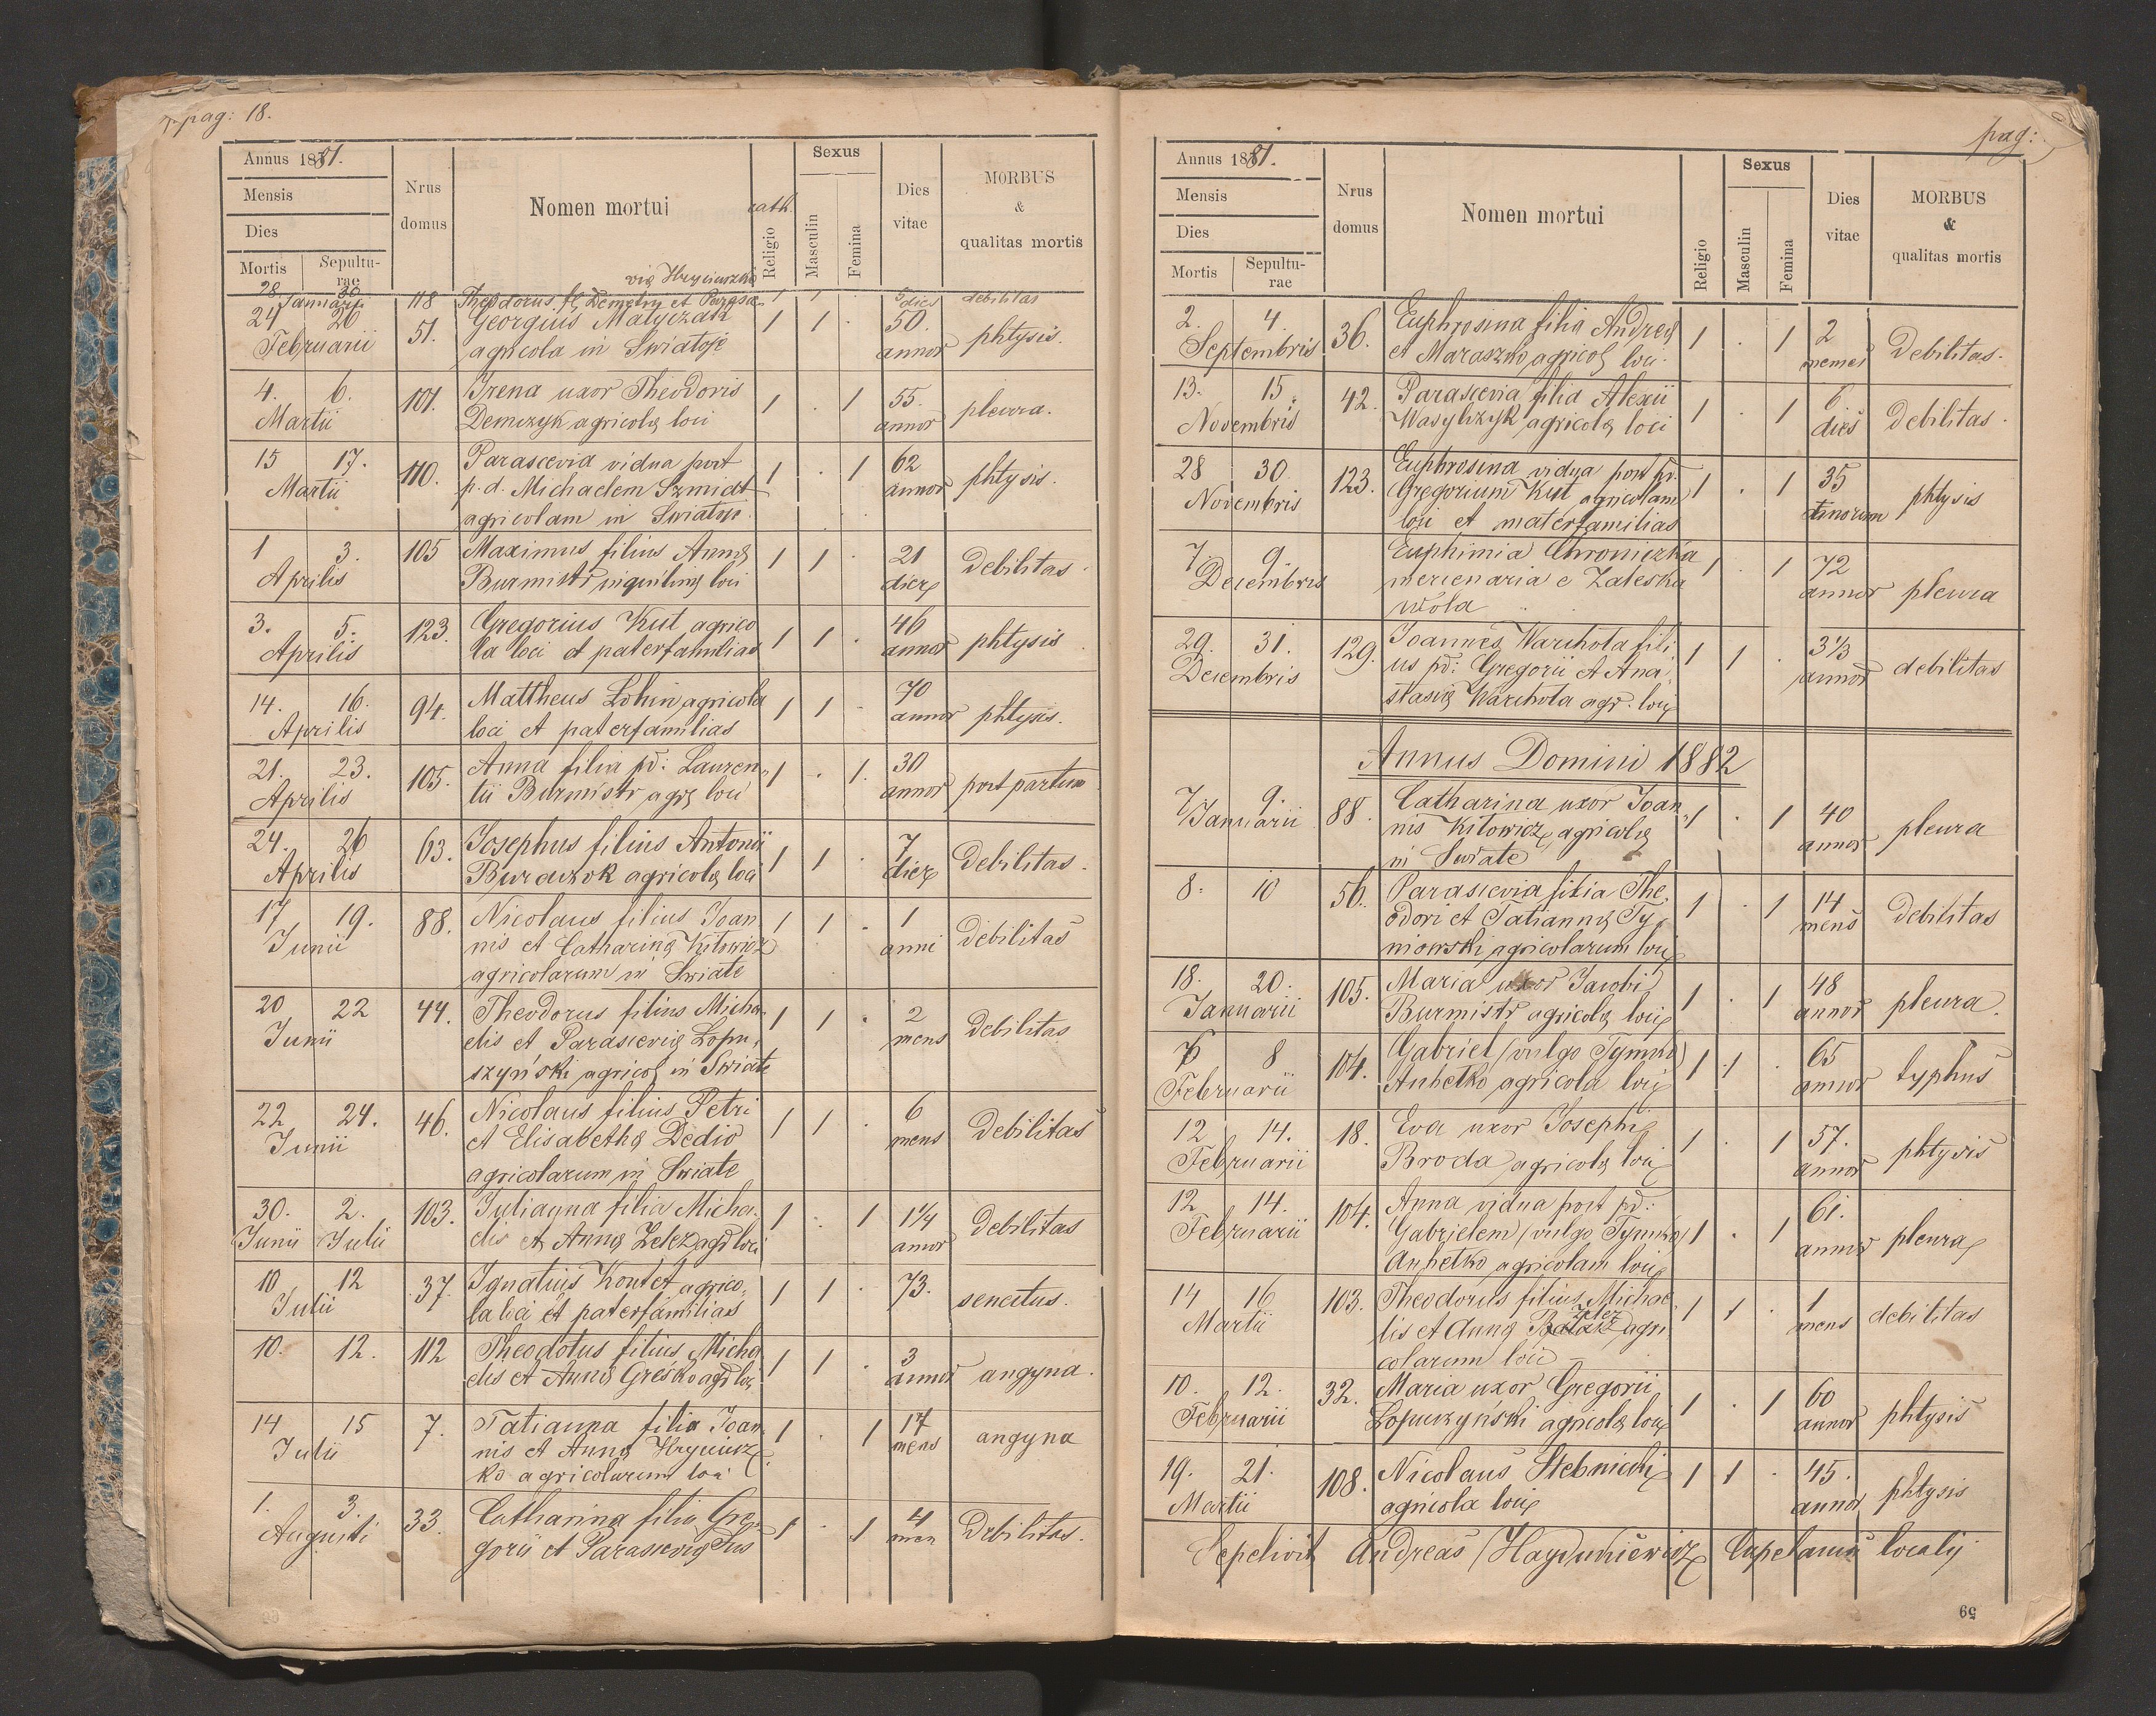 pag: 18.
Annus 1881.
Mensis
Dies
Mortis
Sepultu-
rae
Nrus
domus
Nomen mortui
cath.
Religio
Sexus
Masculin
Femina
Dies
vitae
MORBUS
&
qualitas mortis
28 30 vię Hryciuszko
Januarii 118 Theodorus f. Demetry et Parasce- 1 1 5 dies debilitas
24 26 51. Georgius Matyczak 1 1 . 50. phtysis.
Februarii agricola in Swiatoje annor
4. 6. 101. Irena uxor Theodoris 1 . 1 55. pleura.
Martii Demczyk agricolę loci annor
15 17. 110. Parascevia vidua post 1 . 1 62 phtysis.
Martii p. d. Michaelem Szmidt annor
agricolam in
1 3. 105 Maximus filius Annę 1 1 . 21 debilitas.
Aprilis Burmistr inquilinę loci dier
3. 5. 123. Gregorius Kut agrico 1 1 . 46 phtysis
Aprilis la loci et paterfamilias annor
14. 16. 94. Mattheus Lohin agricola 1 1 . 70 phtysis.
Aprilis loci et paterfamilias annor
21. 23. 105. Anna filia pd: Lauren„ 1 . 1. 30 post partum
Aprilis tii Burmistr agrę loci annor
24. 26 63. Josephus filius Antonii 1 1 . 7 debilitas.
Aprilis Buraczok agricolę loci dier
17 19. 88. Nicolaus filius Joan 1 1 . 1 debilitas
Junii nis et Catharinę Kitowicz anni
agricolarum in Swiate
20 22 44. Theodorus filius Micha 1 1 . 2 debilitas
Junii elis et Parascevię Łopu, mens
szyński agricol in Swiate
22 24. 46. Nicolaus filius Petri 1 1 . 6 debilitas
Junii et Elisabethę Dedio mens
agricolarum in Swiate
30. 2. 103. Julianna filia Micha. 1 . 1 1¼ debilitas
Junii Julii elis et Annę Zelez agr loci annor
10 12 37. Ignatius Kontet agrico, 1 1 73. senectus.
Julii la loci et paterfamilias
10. 12. 112 Theodotus filius Micha 1 1 . 3 angyna.
elis et Annę Greśko agr loci annor
14 15 7. Tatianna filia Joan 1 . 1 17 angyna
Julii nis et Annę Hryciusz mens
ko agricolarum loci
1. 3. 33. Catharina filia Gre„ 1 . 1 4 debilitas.
Augusti gorii et Parascevię Tus men
pag:
Annus 1881.
Mensis
Dies
Mortis
Sepultu-
rae
Nrus
domus
Nomen mortui
Religio
Sexus
Masculin
Femina
Dies
vitae
MORBUS
&
qualitas mortis
2. 4. 36. Euphrosina filia Andreę 1 . 1 2 debilitas.
Septembris et Maraszko agricol loci menses
13. 15. 42. Parascevia filia Alexii 1 . 1 6 debilitas.
Novembris Wasylczyk agricolę loci dies
28 30 123. Euphrosina vidua post pd. 1 . 1 35 phtysis
Novembris Gregorium Kut agricolam annorum
loci et materfamilias
7. 9. Euphimia Chroniczka 1 . 1 72 pleura
Decembris mercenaria e Zaleska annor
wola
29. 31. 129. Joannes Warchoła fili 1 1 . 3⅓ debilitas
Decembris us pd: Gregorii et Ana annor
stasię Warchoła agr. loci
Annus Domini 1882
7 9. 88. Catharina uxor Joan„ 1 . 1 40 pleura
Januarii nis Kitowicz agricolę annor
in Swiate
8. 10 56. Parascevia filia The, 1 . 1 14 debilitas
odori et Tatiannę Ty mens
niowski agricolarum loci
18. 20. 105. Maria uxor Jacobi 1 . 1 48 pleura.
Januarii Burmistr agricolę loci annor
6 8 104. Gabriel (vulgo Tymko) 1 1 . 65 typhus
Februarii Anhelko agricola loci annor
12 14. 18. Eva uxor Josephi 1 . 1 57. phtysis
Februarii Broda agricolę loci annor
12 14. 104. Anna vidua post pd: 1 . 1 61. pleura
Februarii Gabrielem (vulgo Tymko) annor
Anhelko agricolam loci
14 16 103. Theodorus filius Michae„ 1 1 . 1 debilitas
Martii lis et Annę Zelez agri mens
colarum loci
10. 12. 32. Maria uxor Gregorii 1 . 1 60 phtysis
Februarii Łopuszyński agricolę loci annor
19. 21. 108. Nicolaus Stebnicki 1 1 . 45. phtysis
Martii agricola loci annor
Sepelivit Andreas Haydukiewicz Capelanus localis
59